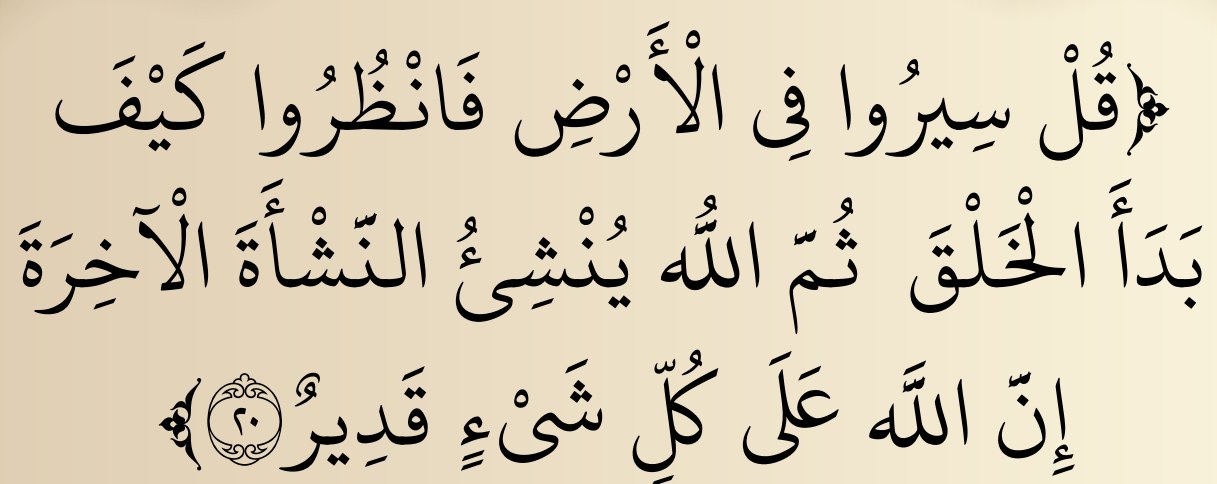 ﴿قُلْ سِيرُوا فِى الْأَرْضِ فَانْظُرُوا كَيْفَ
بَدَأَ الْخَلْقَ ثُمّ اللَّهُ يُنْشِئُ النّشْأَةَ الْآخِرَةَ
إِنّ اللَّهَ عَلَى كُلِّ شَىْءٍ قَدِيرٌ ٢٠﴾